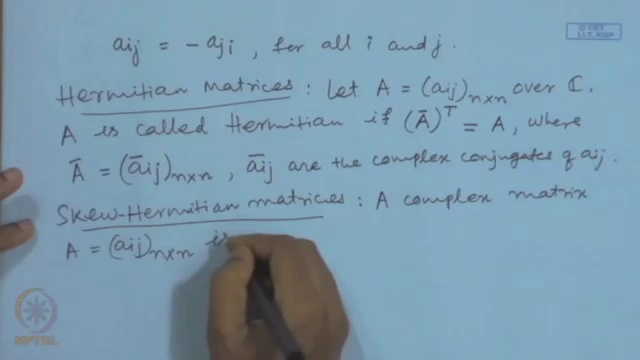 © CET
I.I.T. KGP
aij = - aji , for all i and j.
Hermitian Matrices : Let A = (aij)n×n over ℂ.
A is called Hermitian if (Ā)ᵀ = A, where
Ā = (āij)n×n , āij are the complex conjugates of aij.
Skew-Hermitian matrices : A complex matrix
A = (aij)n×n is
NPTEL